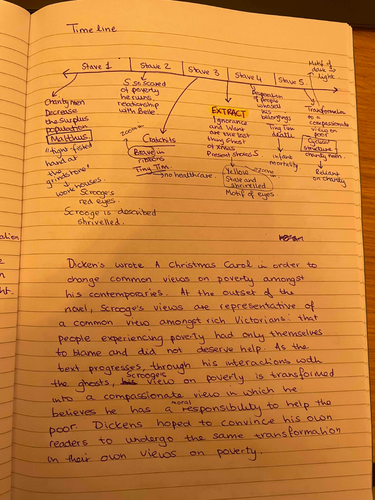 Timeline
Stave 1
Stave 2
Stave 3
Stave 4
Stave 5
Motif of
dark →
light.
Charity men
Decrease
the surplus
population
Malthus.
"tight-fisted
hand at
the
grindstone"
↓
workhouses.
Scrooge's
red eyes.
Scrooge is described
shrivelled.
S so scared
of poverty
he ruins
relationship
with Belle
zoom
Cratchits
Brave in
ribbons
Tiny Tim
→ no healthcare
EXTRACT
Ignorance
and Want
are the last
thing Ghost
of Xmas
Present shows S
Yellow
zoom
and
shrivelled
Motif of eyes
Desperation
of people
who sell
his
belongings
Tiny Tim
death
↓
infant
mortality
Transformation
to a
compassionate
view on
poor
Cyclical
structure
charity men.
↓
Reliant
on charity
Dicken's wrote A Christmas Carol in order to
change common views on poverty amongst
his contemporaries. At the outset of the
novel, Scrooge's views are representative of
a common view amongst rich Victorians: that
people experiencing poverty had only themselves
to blame and did not deserve help. As the
text progresses, through his interactions with
the ghosts, Scrooge's view on poverty is transformed
into a compassionate view in which he
believes he has a moral responsibility to help the
poor. Dickens hoped to convince his own
readers to undergo the same transformation
in their own views on poverty.